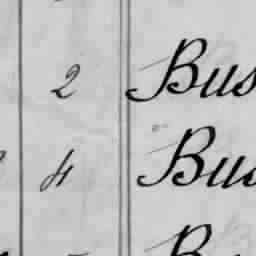 2 Bus
4 Bus